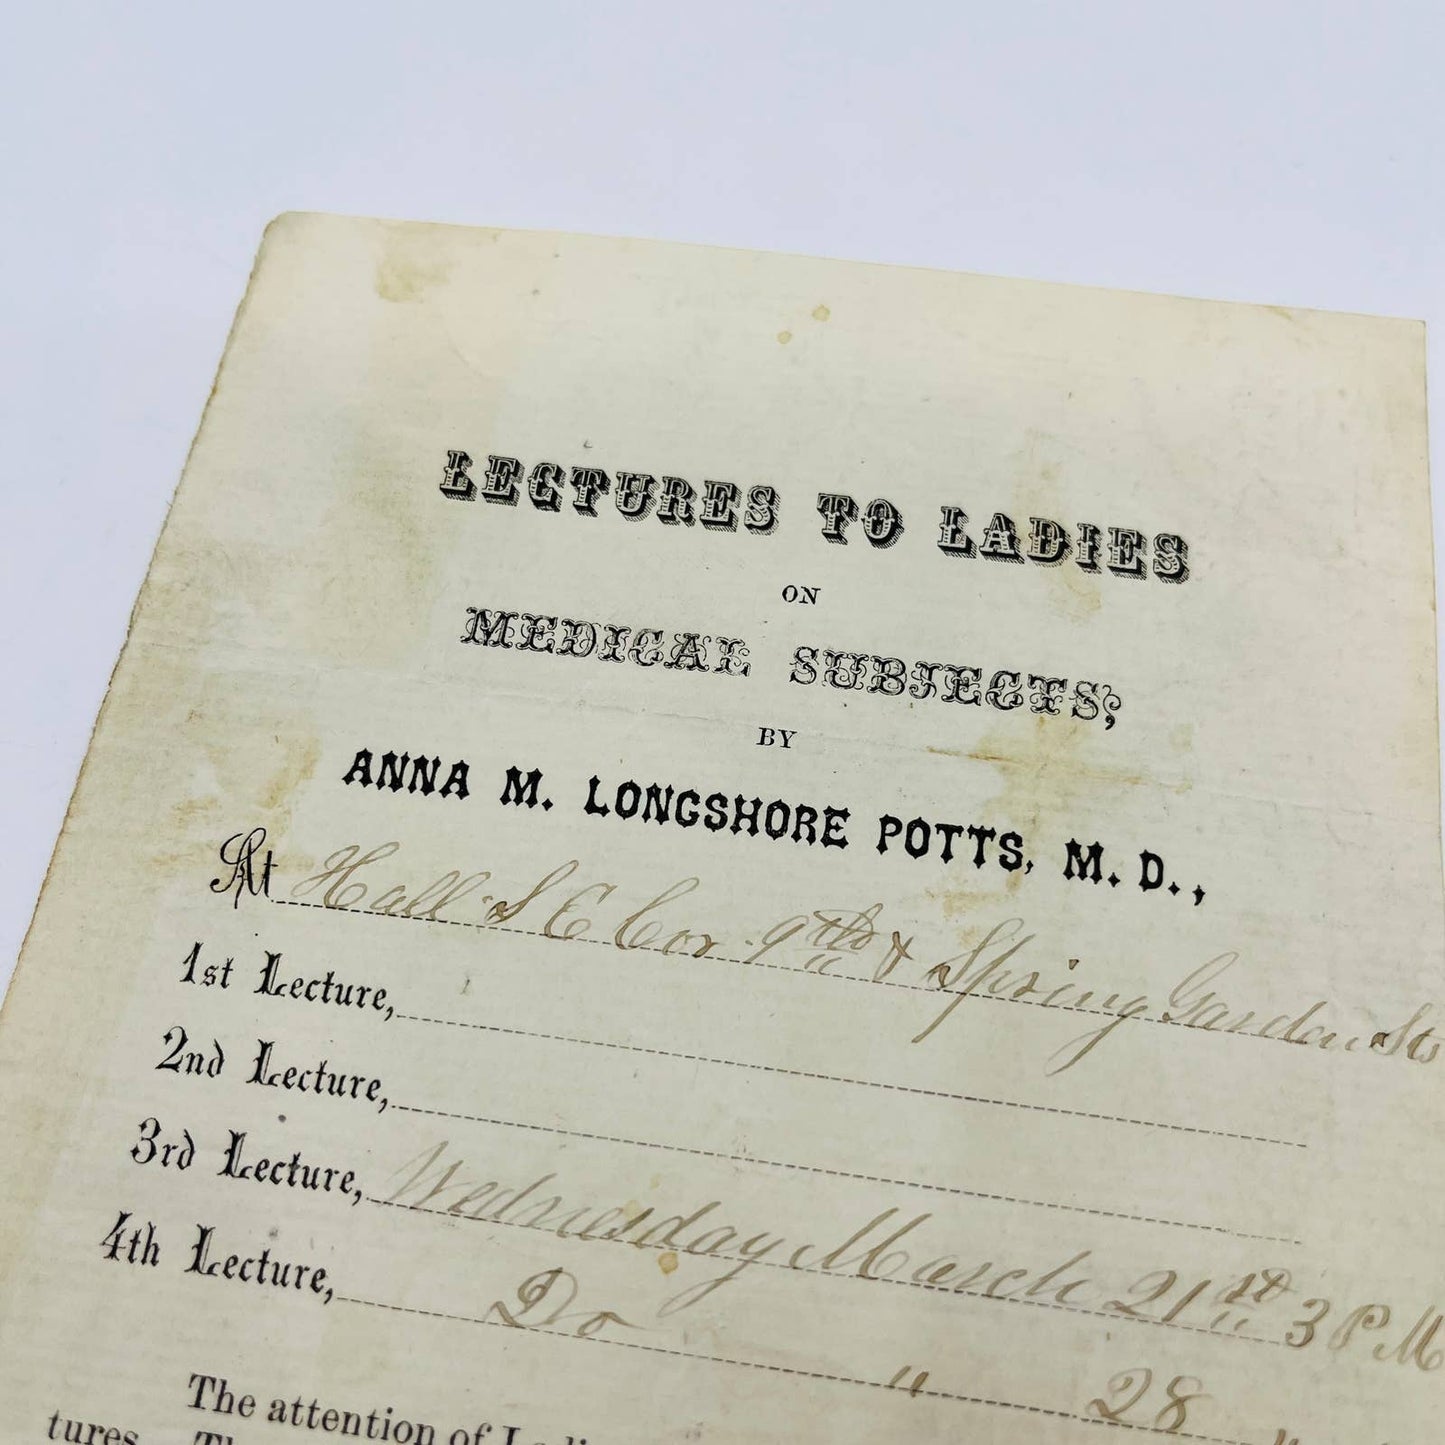 LECTURES TO LADIES
ON
MEDICAL SUBJECTS,
BY
ANNA M. LONGSHORE POTTS, M. D.,
At Hall S E Cor 9th & Spring Garden Sts
1st Lecture,
2nd Lecture,
3rd Lecture, Wednesday March 21st 3 P. M
4th Lecture, Do " 28 "
The attention of Ladi
tures. Th